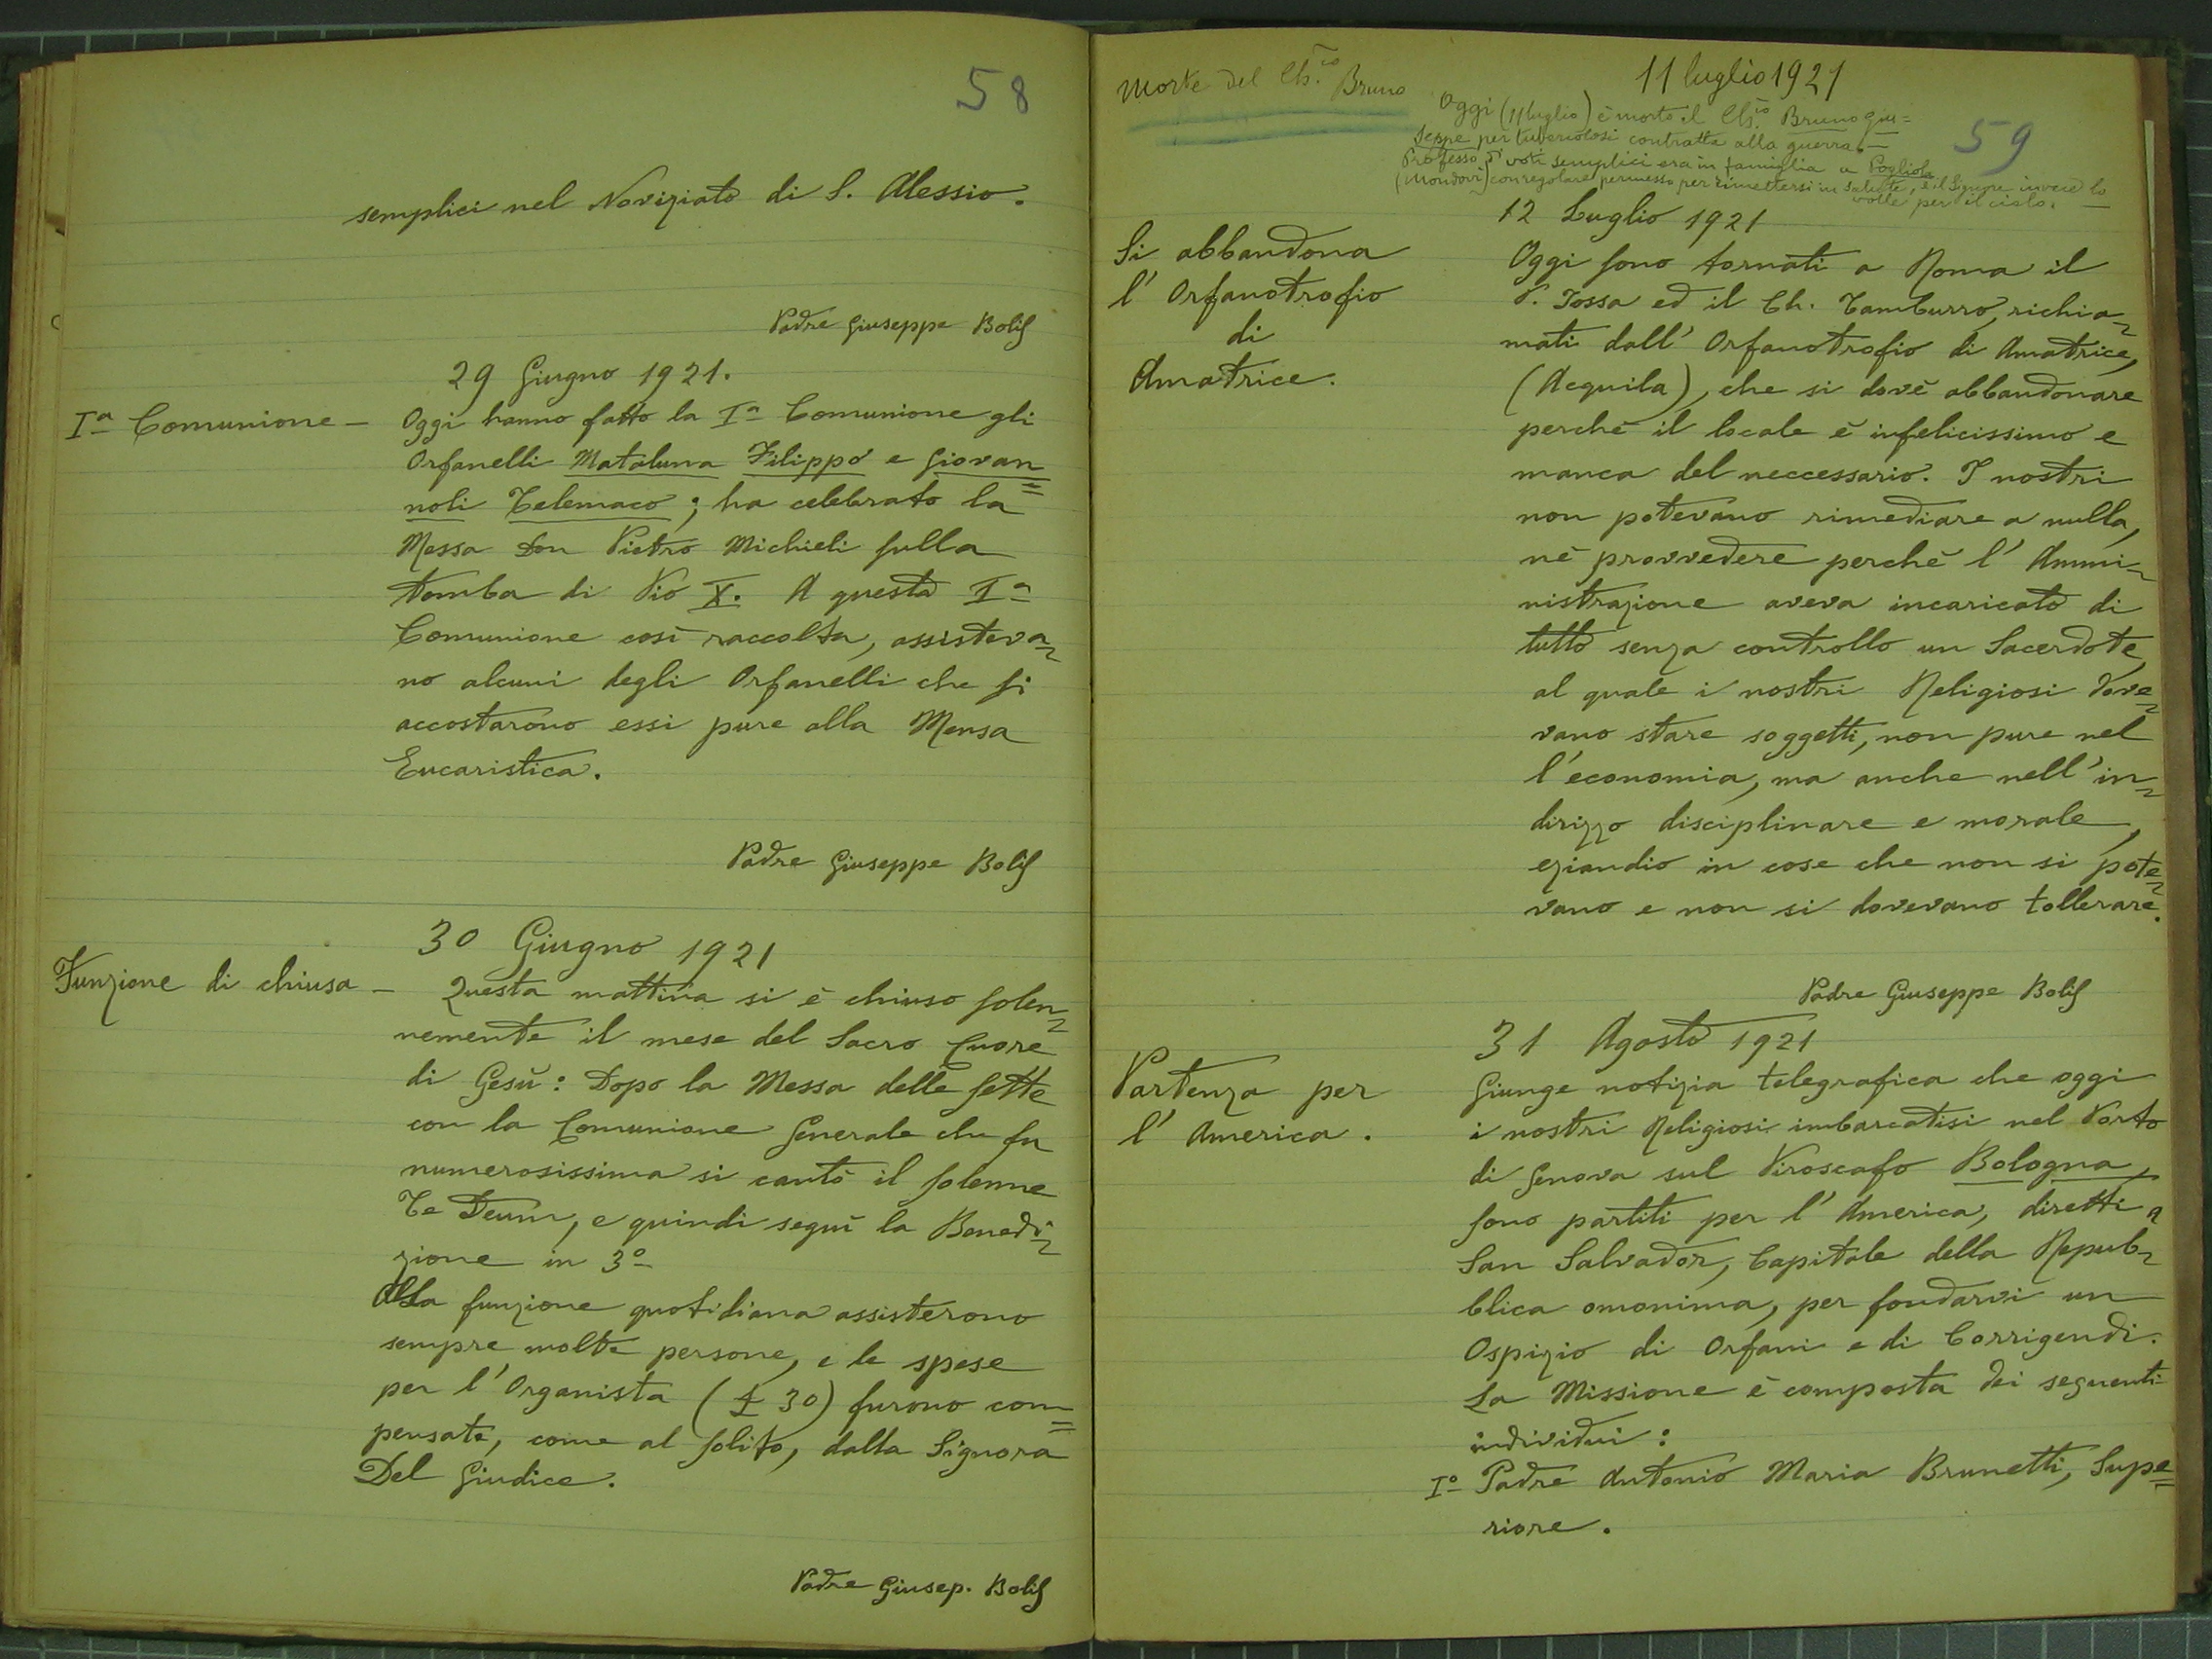 58
semplici nel Noviziato di S. Alessio.
Padre Giuseppe Bolis
29 Giugno 1921.
Iª Comunione — Oggi hanno fatto la Iª Comunione gli
Orfanelli Mataluna Filippo e Giovan=
noli Telemaco; ha celebrato la
Messa Don Pietro Michieli sulla
tomba di Pio X. A questa Iª
Comunione così raccolta, assisteva=
no alcuni degli Orfanelli che si
accostarono essi pure alla Mensa
Eucaristica.
Padre Giuseppe Bolis
30 Giugno 1921
Funzione di chiusa — Questa mattina si è chiuso solen=
nemente il mese del Sacro Cuore
di Gesù: Dopo la Messa delle sette
con la Comunione Generale che fu
numerosissima si cantò il solenne
Te Deum, e quindi seguì la Benedi=
zione in 3º
Alla funzione quotidiana assisterono
sempre molte persone, e le spese
per l'Organista (£ 30) furono com=
pensate, come al solito, dalla Signora
Del Giudice.
Padre Giusep. Bolis
59
11 luglio 1921
Morte del Ch.co Bruno
Oggi (11 luglio) è morto il Ch.co Bruno Giu=
seppe per tubercolosi contratta alla guerra. —
Professo di voti semplici era in famiglia a Pogliola
(Mondovì) con regolare permesso per rimettersi in salute, e il Signore invece lo
volle per il cielo.
12 Luglio 1921
Si abbandona
l'Orfanotrofio
di
Amatrice.
Oggi sono tornati a Roma il
P. Tossa ed il Ch. Tamburro, richia=
mati dall'Orfanotrofio di Amatrice,
(Acquila), che si dovè abbandonare
perchè il locale è infelicissimo e
manca del neccessario. I nostri
non potevano rimediare a nulla,
nè provvedere perchè l'Ammi=
nistrazione aveva incaricato di
tutto senza controllo un Sacerdote,
al quale i nostri Religiosi dove=
vano stare soggetti, non pure nel
l'economia, ma anche nell'in=
dirizzo disciplinare e morale,
eziandio in cose che non si pote=
vano e non si dovevano tollerare.
Padre Giuseppe Bolis
31 Agosto 1921
Partenza per
l'America.
Giunge notizia telegrafica che oggi
i nostri Religiosi imbarcatisi nel Porto
di Genova sul Piroscafo Bologna,
sono partiti per l'America, diretti a
San Salvador, Capitale della Repub=
blica omonima, per fondarvi un
Ospizio di Orfani e di Corrigendi.
La Missione è composta dei seguenti
individui:
Iº Padre Antonio Maria Brunetti, Supe=
riore.